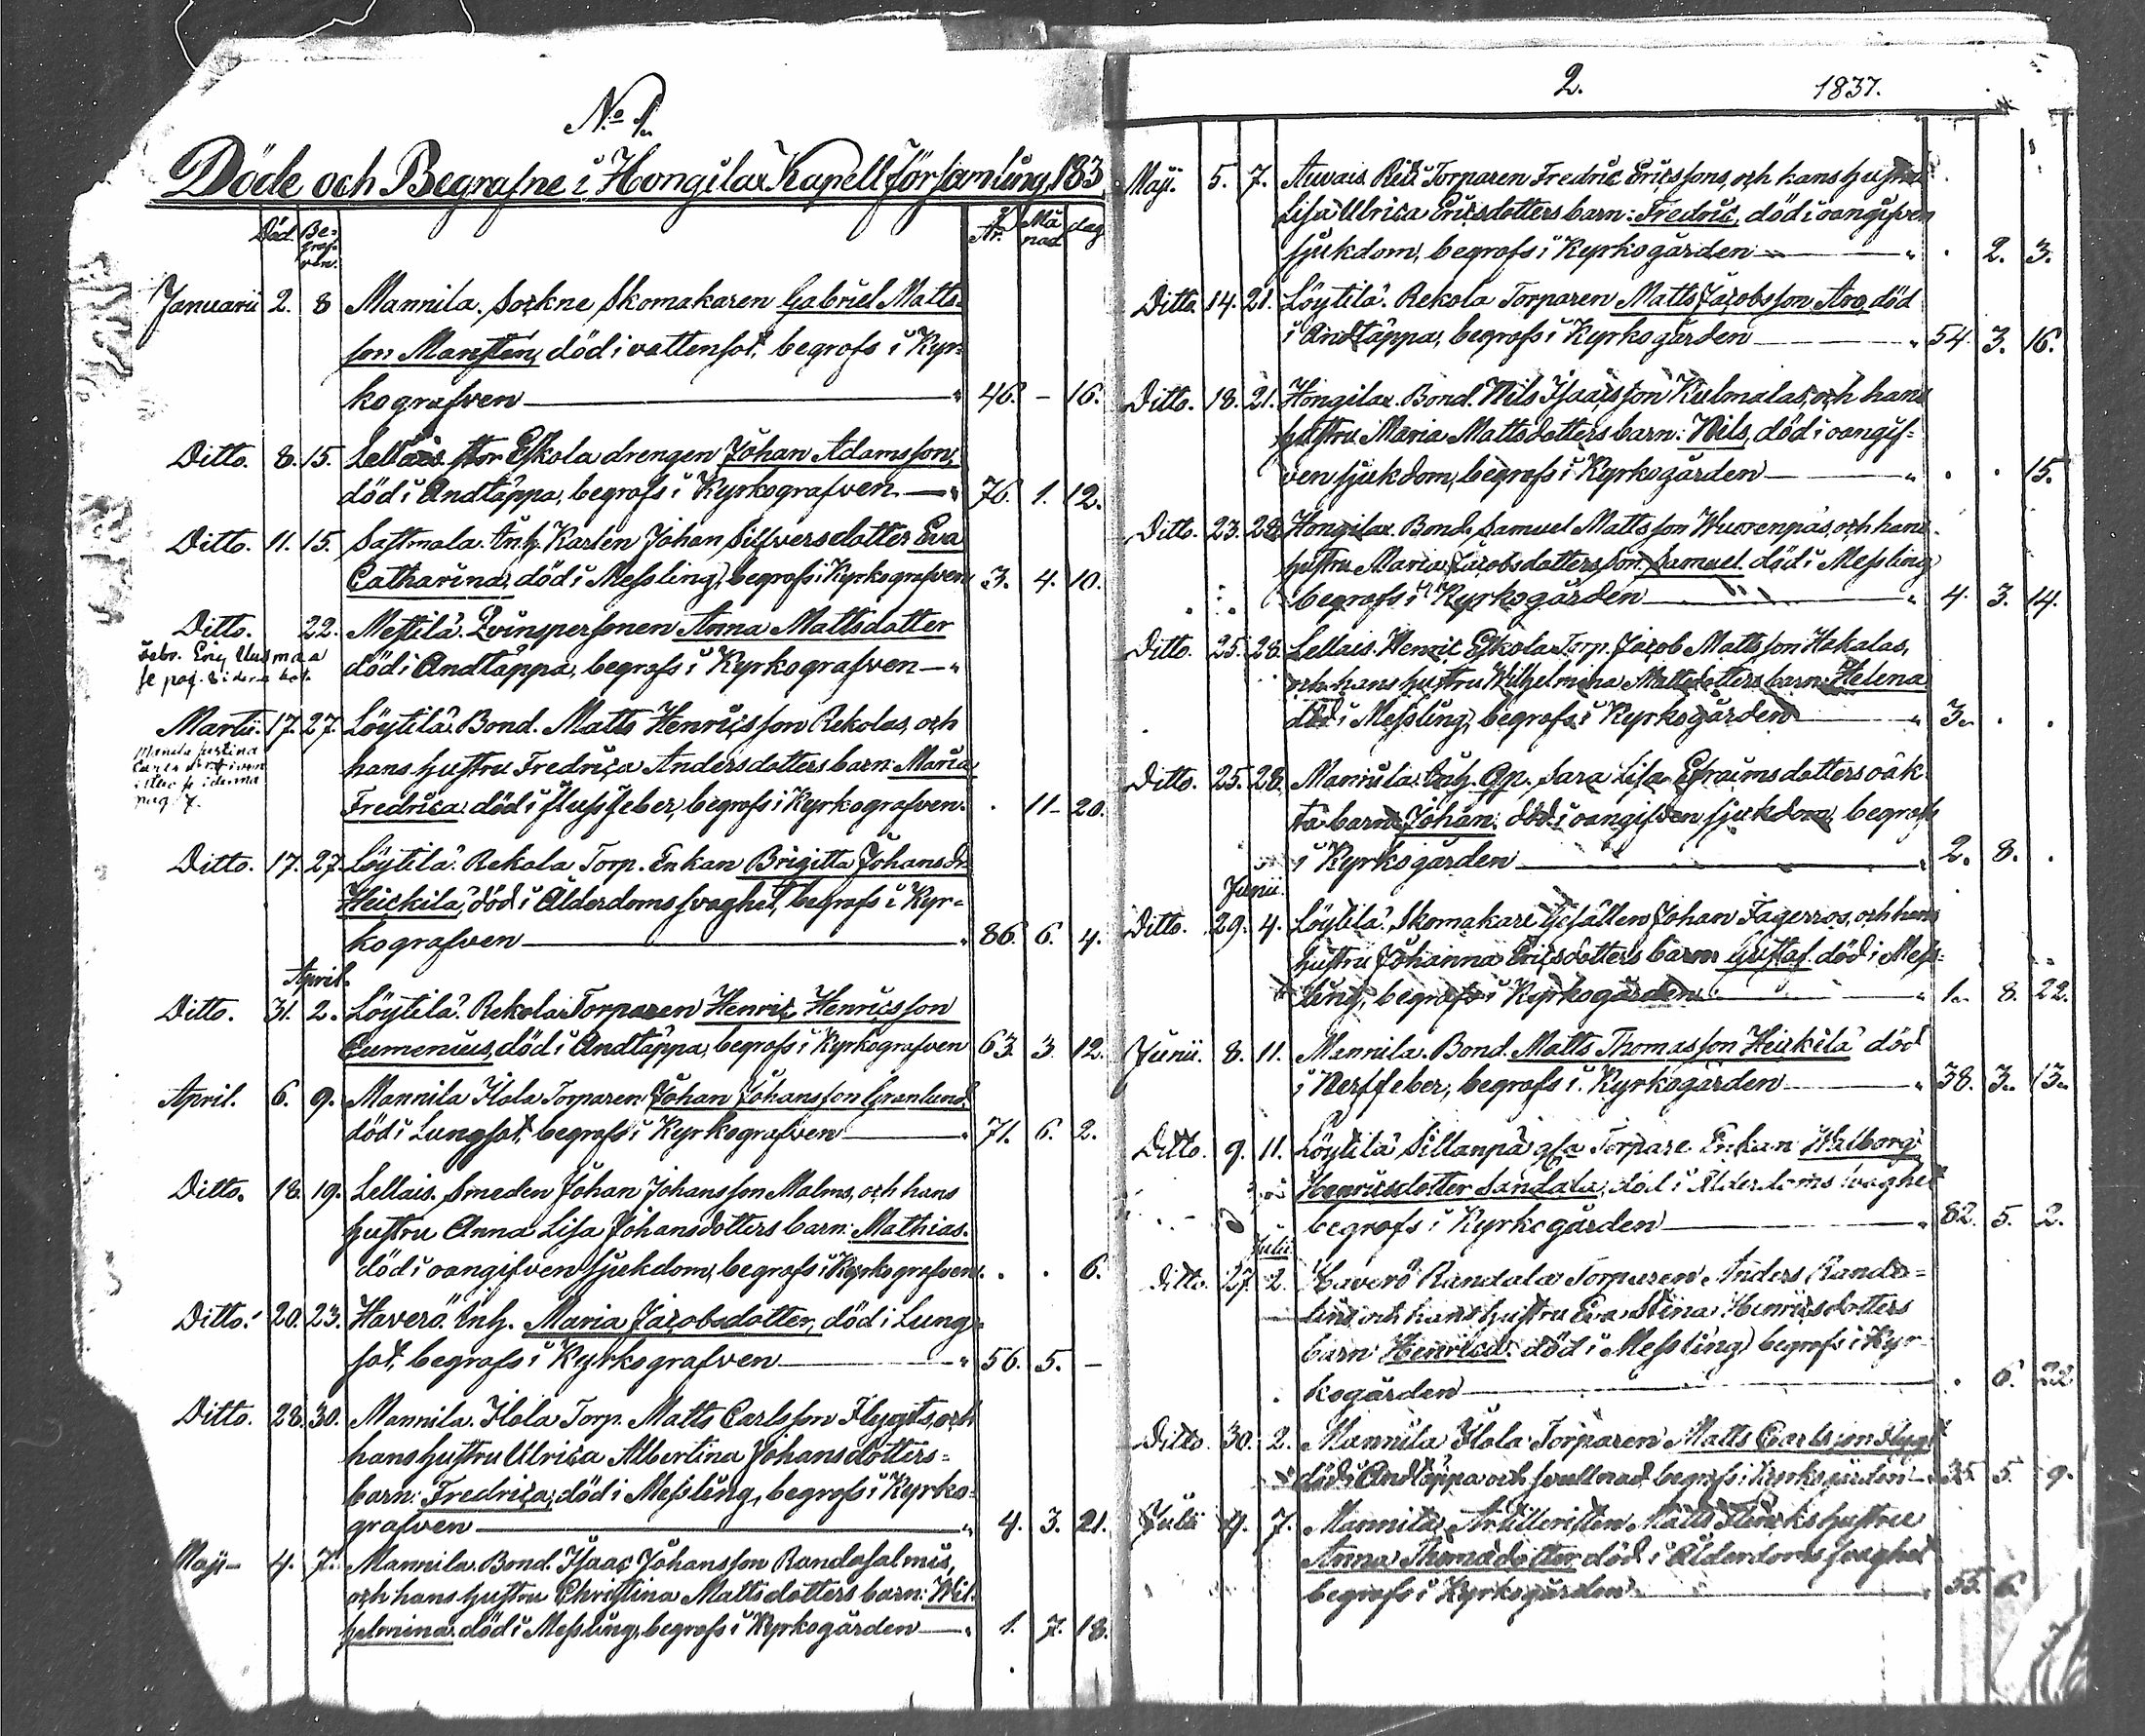 N:o 1.
Döde och Begrafne i Hongilax Kapell församling 183
Död. Be-grafven. År. Månad dag
Januarii 2. 8 Mannila. Sockne Skomakaren Gabriel Matts-
son Marsten, död i vattensot, begrofs i Kyr-
kografven 46. - 16.
Ditto. 8. 15. Lellais. Stor Eskola drengen Johan Adamsson,
död i Andtäppa, begrofs i Kyrkografven 76. 1. 12.
Ditto. 11. 15. Sastmala. Inh. Karlen Johan Silfversdotter Eva
Catharina, död i Messling, begrofs i Kyrkografven 3. 4. 10.
Ditto. 22. Mestilä. Qvinspersonen Anna Mattsdotter
Febr. Eric Uusmaa
död i Andtäppa, begrofs i Kyrkografven
se pag.
Martii. 17. 27. Löytilä. Bond. Matts Henricsson Rekolas, och
hans hustru Fredrica Andersdotters barn: Maria
Fredrica död i flussfeber, begrofs i Kyrkografven. . 11- 20.
pag 7.
Ditto. 17. 27. Löytilä. Rekola Torp. Enkan Brigitta Johansdr
Heickilä, död i Ålderdoms svaghet, begrofs i Kyr-
kografven 86. 6. 4.
April.
Ditto. 31. 2. Löytilä. Rekola Torparen Henric Henricsson
Eumenius, död i Andtäppa, begrofs i Kyrkografven 63. 3. 12.
April. 6. 9. Mannila Ilola Torparen Johan Johansson Granlund,
död i Lungsot, begrofs i Kyrkografven 71. 6. 2.
Ditto. 18. 19. Lellais. Smeden Johan Johansson Malms, och hans
hustru Anna Lisa Johansdotters barn: Mathias.
död i oangifven sjukdom, begrofs i Kyrkografven. . . 6.
Ditto. 20. 23. Haverö. Inh. Maria Jacobsdotter, död i Lung-
sot, begrofs i Kyrkografven 56. 5. -
Ditto. 28. 30. Mannila. Ilola Torp. Matts Carlsson Flygts, och
hans hustru Ulrica Albertina Johansdotters-
barn: Fredrica, död i Messling, begrofs i Kyrko-
grafven 4. 3. 21.
Maji- 4. 7. Mannila. Bond. Isaac Johansson Randasalmis,
och hans hustru Christina Mattsdotters barn: Wil-
helmina, död i Messling, begrofs i Kyrkogården 1. 7. 18.
2. 1837.
Maji. 5. 7. Auvais Torparen Fredric Ericssons, och hans hustru
Lisa Ulrica Ericsdotters barn: Fredric, död i oangifven
sjukdom, begrofs i Kyrkogården . 2. 3.
Ditto. 14. 21. Löytilä. Rekola Torparen Matts Jacobsson Aro, död
i Andtäppa, begrofs i Kyrkogården 54. 3. 16.
Ditto. 18. 21. Hongilax. Bond. Nils Isaacsson Kulmalas, och hans
hustru Maria Mattsdotters barn: Nils, död i oangif-
ven sjukdom, begrofs i Kyrkogården . . 15.
Ditto. 23. 28. Hongilax. Bond. Samuel Mattsson Wuorenpääs, och hans
hustru Maria Jacobsdotters Son: Samuel. död i Messling
begrofs i Kyrkogården 4. 3. 14.
Ditto. 25. 28. Lellais. Henric Eskola Torp. Jacob Mattsson Hakalas,
och hans hustru Wilhelmina Mattsdotters barn: Helena
död i Messling, begrofs i Kyrkogården 3. . .
Ditto. 25. 28. Mannila. Inh. Qp. Sara Lisa Efraimsdotters oäk-
ta barn: Johan. död i oangifven sjukdom, begrofs
i Kyrkogården 2. 8. .
Junii.
Ditto. 29. 4. Löytilä. Skomakare Gesällen Johan Fagerros, och hans
hustru Johanna Ericsdotters barn: Gustaf. död i Mess-
ling, begrofs i Kyrkogården 1. 8. 22.
Junii. 8. 11. Mannila. Bond. Matts Thomasson Heickilä död
i Nerffeber, begrofs i Kyrkogården 38. 3. 13.
Ditto. 9. 11. Löytilä Sillanpä gla Torpare Enkan Walborg
Henricsdotter Sandala, död i Ålderdoms svaghet
begrofs i Kyrkogården 82. 5. 2.
Julii.
Ditto. 27. 2. Haverö Randala Torparen Anders Randa-
lins och hans hustru Eva Stina Henricsdotters
barn Henrica död i Messling, begrofs i Kyr-
kogården . 6. 22
Ditto. 30. 2. Mannila Ilola Torparen Matts Carlsson Flygt
död i Andtäppa och svullnad, begrofs i Kyrkogården 35. 5. 9.
Julii 4. 7. Mannila, Artilleristen Matts hustru
Anna Thomadotter död i Ålderdoms svaghet
begrofs i Kyrkogården 55. 6.